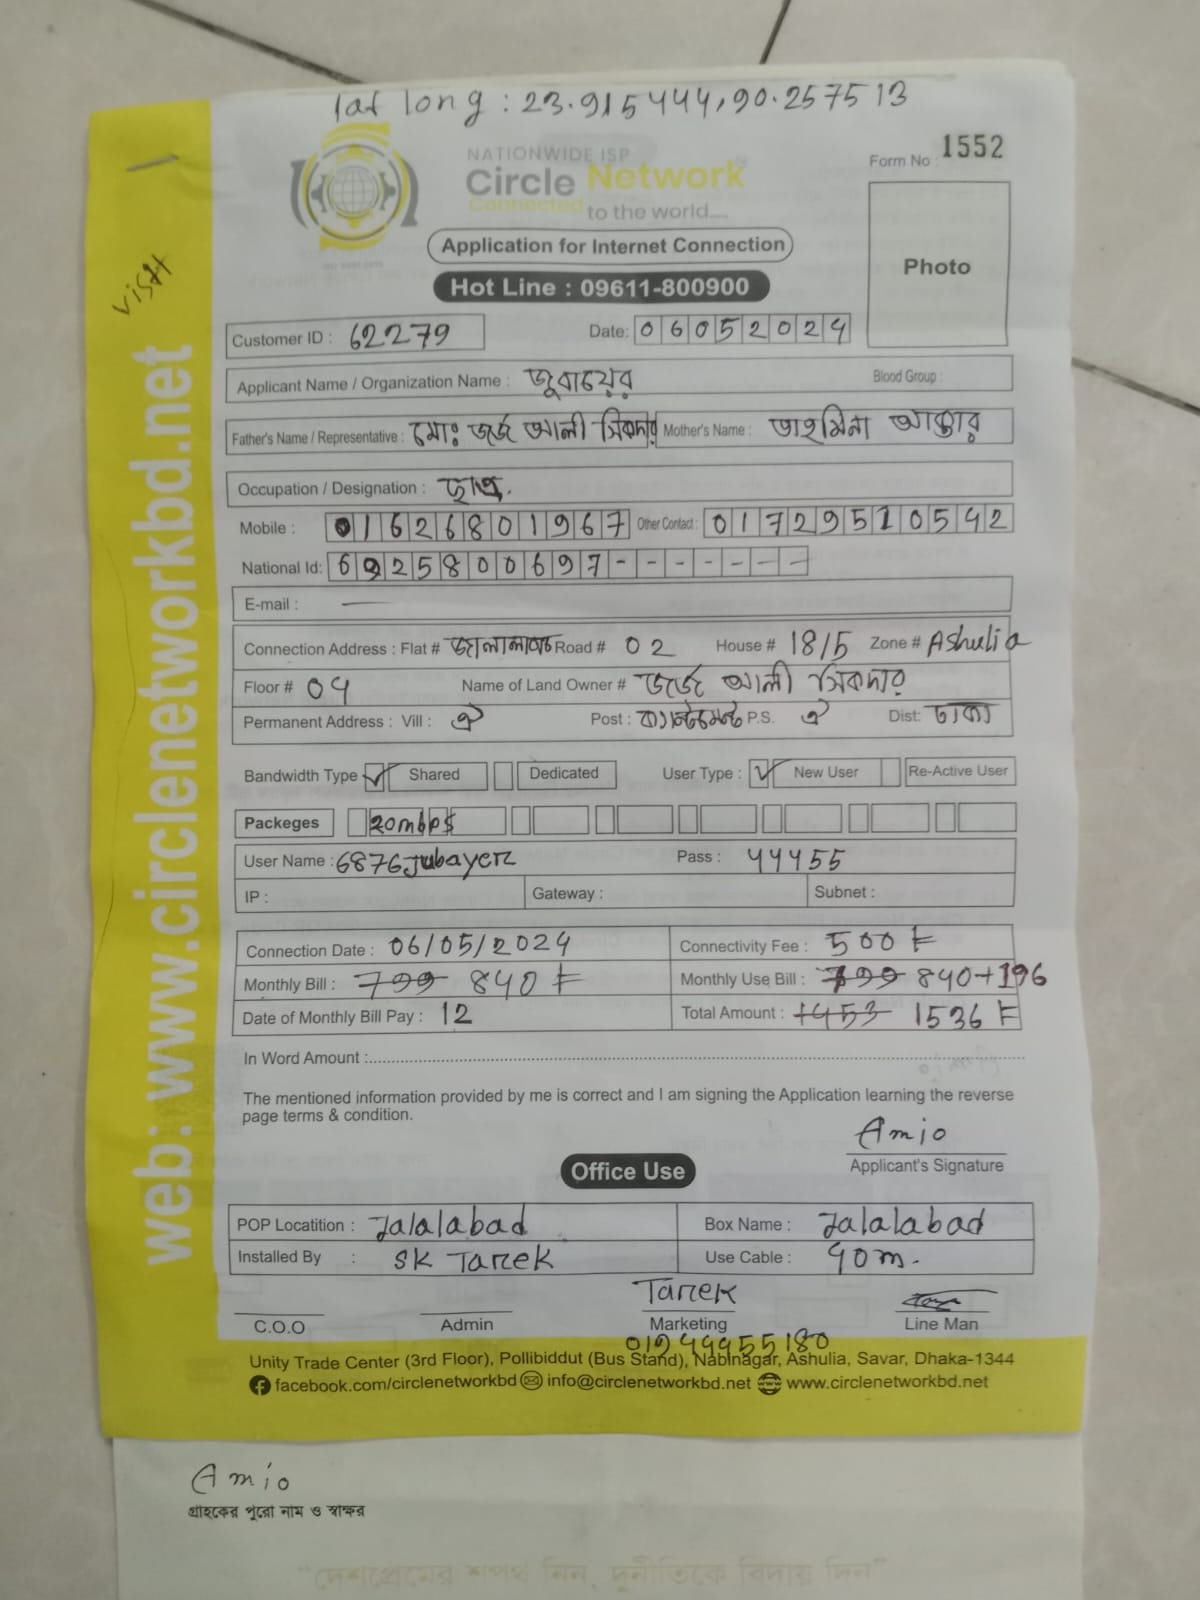 lat long : 23.915444,90.257513
NATIONWIDE ISP
Circle Network
Connected to the world....
Form No : 1552
Application for Internet Connection
Photo
Hot Line : 09611-800900
visit
web: www.circlenetworkbd.net
Customer ID : 62279 Date: 06052024
Applicant Name / Organization Name : জুবায়ের Blood Group :
Father's Name / Representative : মোঃ জর্জ আলী সিকদার Mother's Name : তাহমিনা আক্তার
Occupation / Designation : ছাত্র.
Mobile : 01626801967 Other Contact : 01729510542
National Id: 6925800697- - - - - - -
E-mail : —
Connection Address : Flat # জালালাবাদ Road # 02 House # 18/5 Zone # Ashulia
Floor # 04 Name of Land Owner # জর্জ আলী সিকদার
Permanent Address : Vill : ঐ Post : ক্যান্টনমেন্ট P.S. ঐ Dist: ঢাকা
Bandwidth Type ✓ Shared Dedicated User Type : ✓ New User Re-Active User
Packeges 20mbps
User Name : 6876Jubayer Pass : 44455
IP : Gateway : Subnet :
Connection Date : 06/05/2024 Connectivity Fee : 500 ৳
Monthly Bill : 799 840 ৳ Monthly Use Bill : 799 840+196
Date of Monthly Bill Pay : 12 Total Amount : 1453 1536 ৳
In Word Amount :
The mentioned information provided by me is correct and I am signing the Application learning the reverse
page terms & condition.
Amio
Applicant's Signature
Office Use
POP Locatition : Jalalabad Box Name : Jalalabad
Installed By : SK Tarek Use Cable : 90m.
Tarek
C.O.O Admin Marketing Line Man
Unity Trade Center (3rd Floor), Pollibiddut (Bus Stand), Nabinagar, Ashulia, Savar, Dhaka-1344
facebook.com/circlenetworkbd info@circlenetworkbd.net www.circlenetworkbd.net
Amio
গ্রাহকের পুরো নাম ও স্বাক্ষর
"দেশপ্রেমের শপথ নিন, দুর্নীতিকে বিদায় দিন"